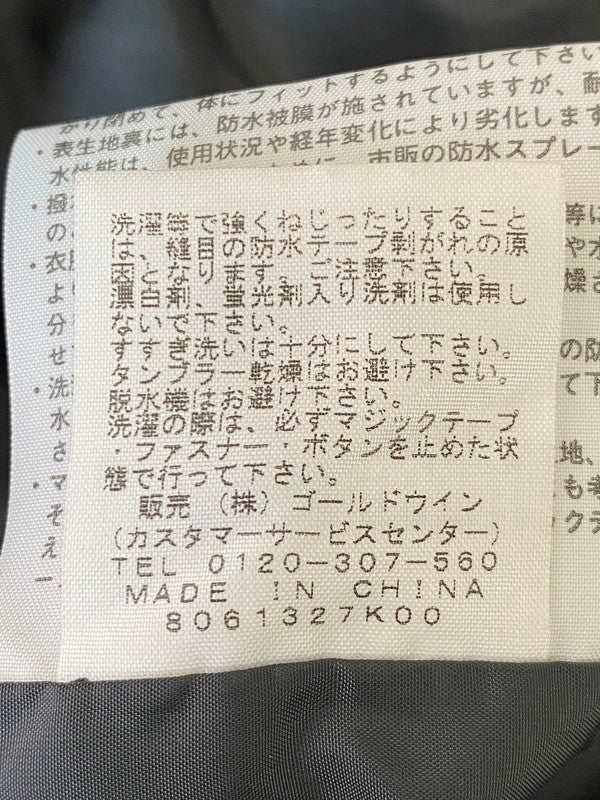 がり閉めて、体にフィットするようにして下さい
・表生地裏には、防水被膜が施されていますが、耐
水性能は、使用状況や経年変化により劣化します
市販の防水スプレー
・撥
の
・衣
よ
分
せ
・洗
水
さ
・マ
そ
え
洗濯等で強くねじったりすること
は、縫目の防水テープ剥がれの原
因となります。ご注意下さい。
漂白剤、蛍光剤入り洗剤は使用し
ないで下さい。
すすぎ洗いは十分にして下さい。
タンブラー乾燥はお避け下さい。
脱水機はお避け下さい。
洗濯の際は、必ずマジックテープ
・ファスナー・ボタンを止めた状
態で行って下さい。
販売 (株) ゴールドウイン
(カスタマーサービスセンター)
TEL 0120-307-560
MADE IN CHINA
8061327K00
等に
や水
燥さ
の防
て下
地、
も考
ックテ